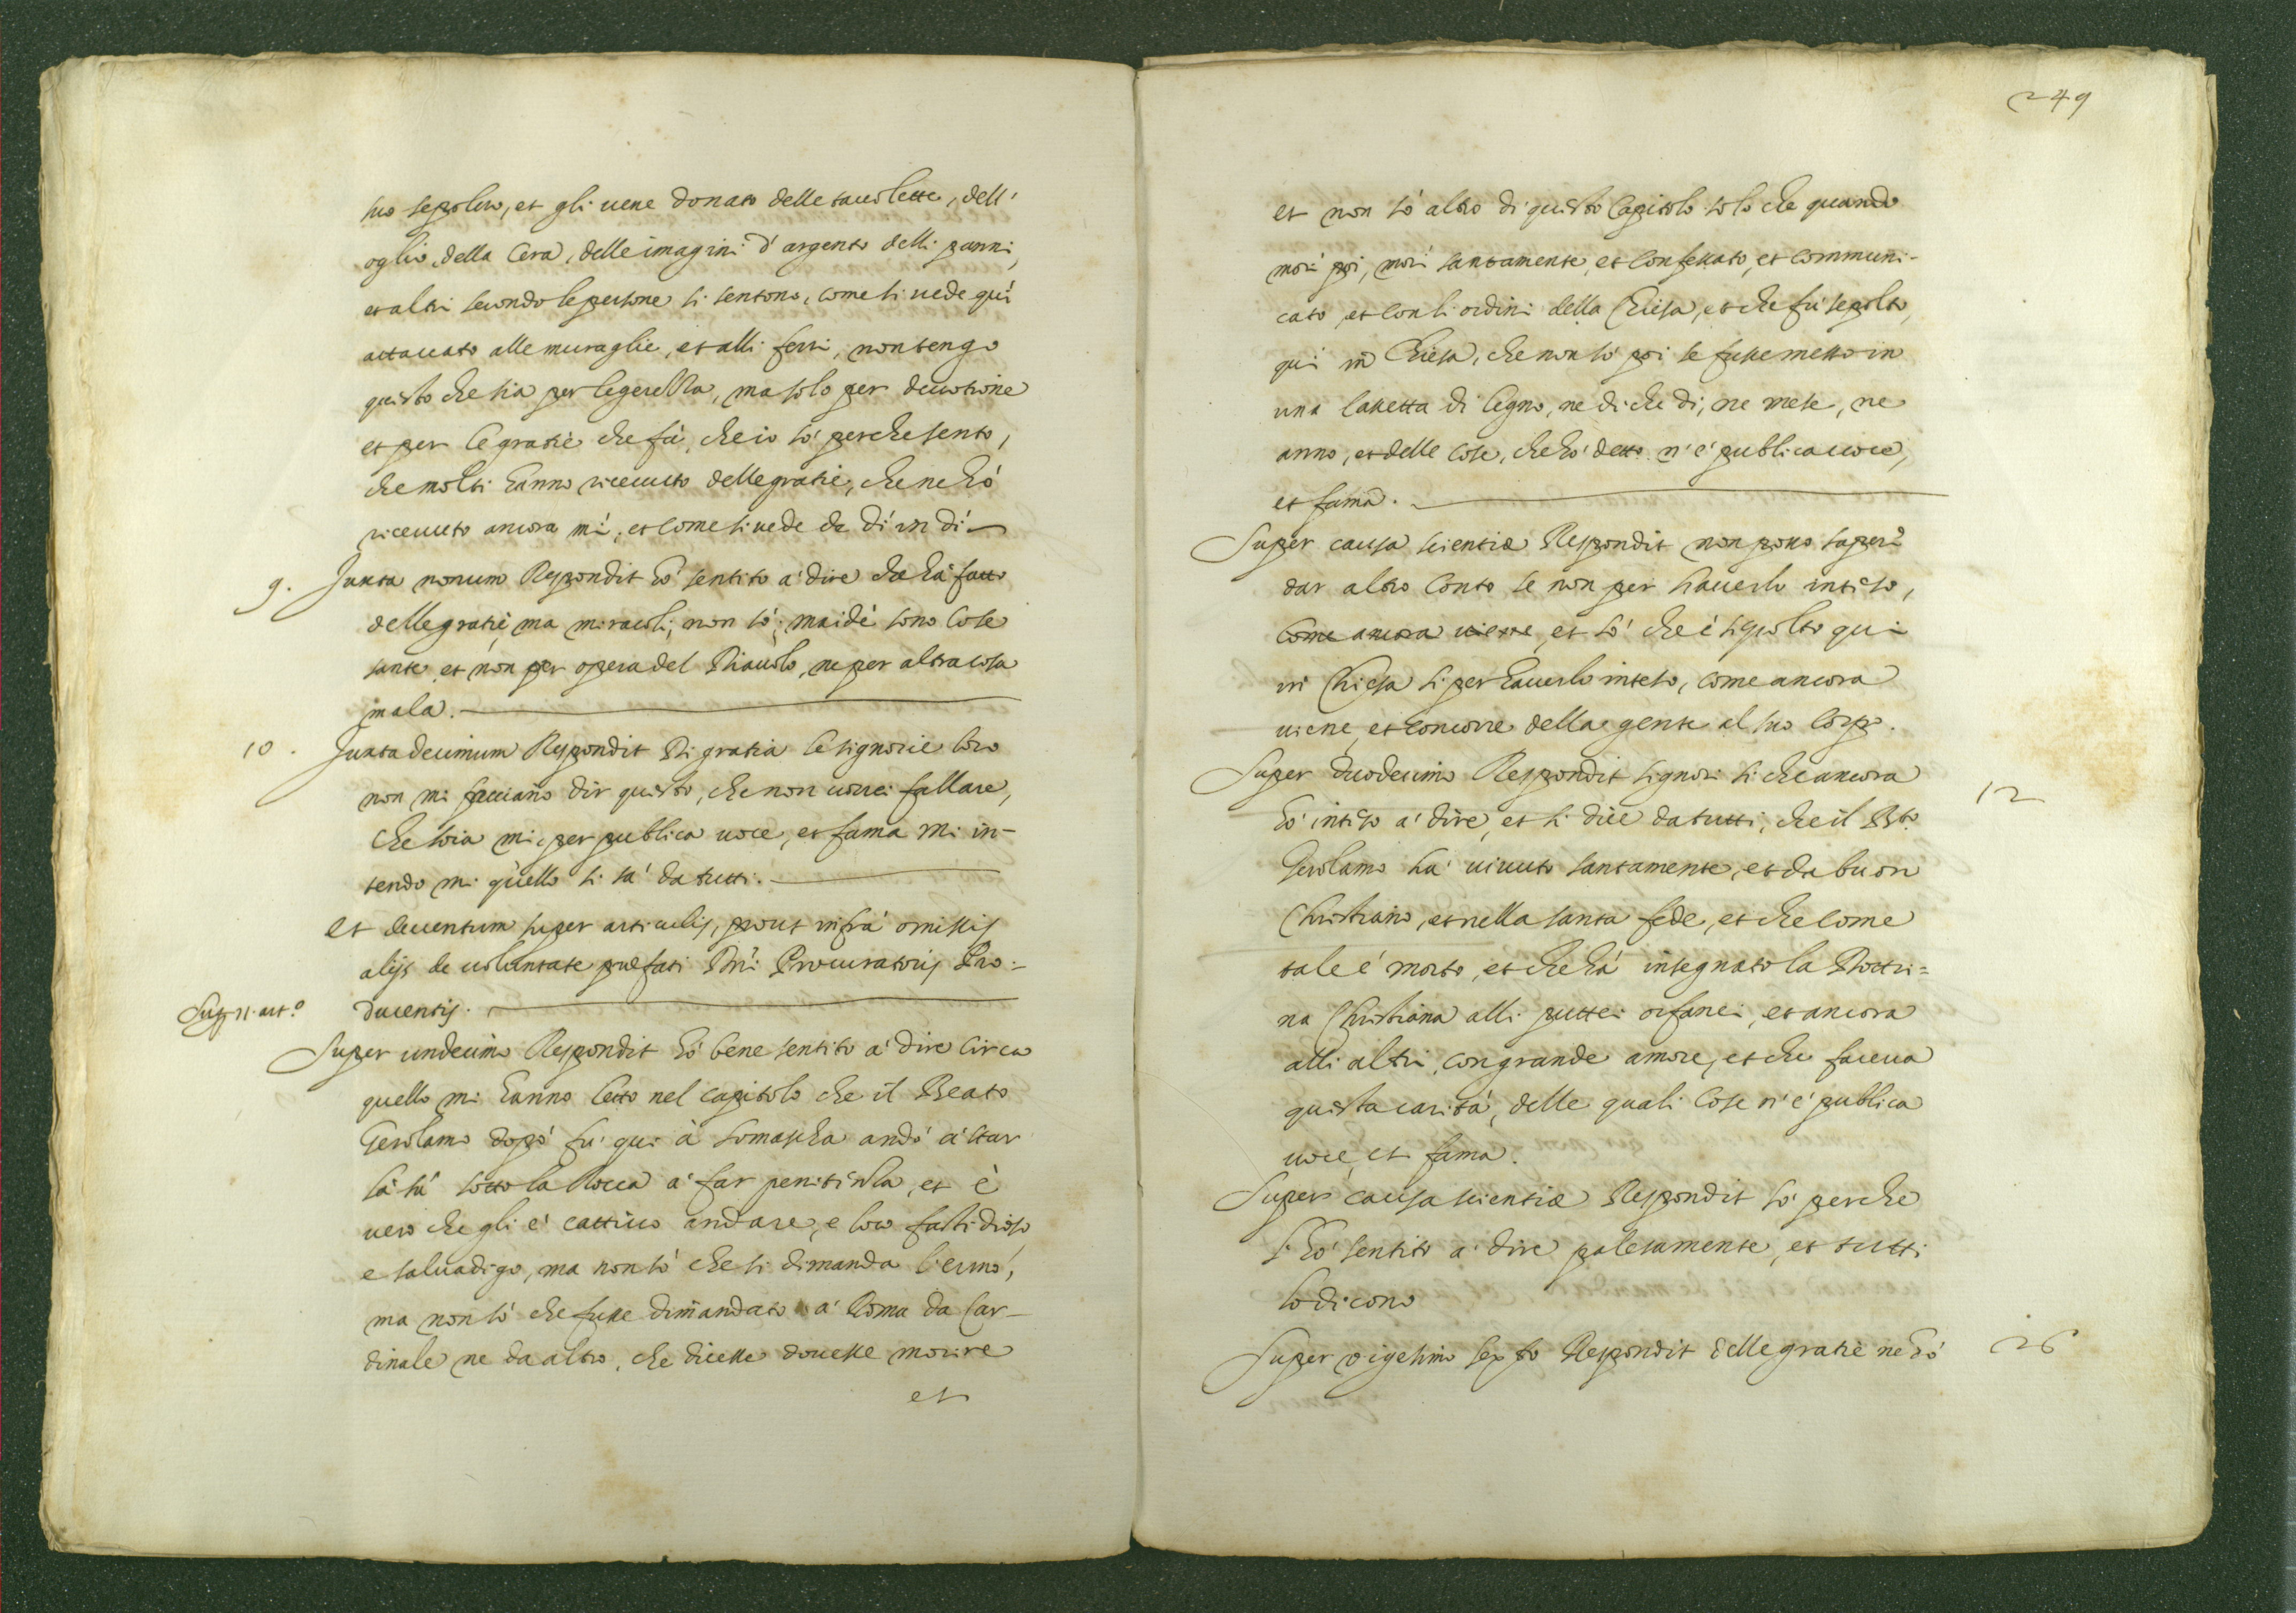 suo sepolcro, et gli uene donato delle tauolette, dell'
oglio, della Cera, delle imagini d'argento delli panni,
et altri secondo le persone si sentono, come si uede quì
attaccato alle muraglie, et alli ferri, non tengo
questo che sia per legerezza, ma solo per deuotione
et per le gratie che fà, che io sò perche sento,
che molti hanno riceuuto delle gratie, che ne hò
riceuuto ancora mi, et come si uede da dì in dì
9. Juxta nonum Respondit hò sentito a' dire che hà fatto
delle gratie, ma miracoli, non sò, maidè sono Cose
sante et non per opera del Diauolo, ne per altra cosa
mala.
10. Juxta decimum Respondit Di gratia le signorie loro
non mi facciano dir questo, che non uorrei fallare,
che soia mi, per publica uoce, et fama mi in-
tendo mi quello si sà da tutti.
Et deuentum super articulis, prout infrà omissis
alijs de uoluntate praefati D. Procuratoris Pro-
Sup. 11. art.º
ducentis.
Super undecimo Respondit hò bene sentito a' dire circa
quello mi hanno letto nel capitolo che il Beato
Gerolamo dopò fù qui à Somascha andò à star
là sù sotto la Rocca a' far penitenza, et è
uero che gli è cattiuo andare, e loco fastidioso
e saluadigo, ma non sò che si dimanda l'ermo,
ma non sò che fusse dimandato a' Roma da Car-
dinale ne da altro, che dicesse douesse morire
et
249
et non sò altro di questo Capitolo solo che quando
morì poi, morì santamente, et confessato, et communi-
cato, et con li ordini della Chiesa, et che fù sepolto,
quì in Chiesa, che non sò poi se fusse messo in
una cassetta di legno, ne di che dì, ne mese, ne
anno, et delle cose, che hò detto n'è publica uoce,
et fama.
Super causa scientiae Respondit non posso saper
dar altro Conto se non per hauerlo inteso,
come ancora uiene, et sò che è sepolto qui
in Chiesa si per hauerlo inteso, come ancora
uiene, et concorre della gente al suo Corpo.
Super duodecimo Respondit signori si che ancora
12
hò inteso a' dire, et si dice da tutti, che il Bto.
Gerolamo hà uiuuto santamente, et da buon
Christiano, et nella santa fede, et che come
tale è morto, et che hà insegnato la Dottri=
na Christiana alli puttei orfanei, et ancora
alli altri, con grande amore, et che faceua
questa carità, delle quali Cose n'è publica
uoce, et fama.
Super causa scientiae Respondit sò perche
l'hò sentito a' dire palesamente, et tutti
lo dicono
Super uigesimo sexto Respondit delle gratie ne hò
26